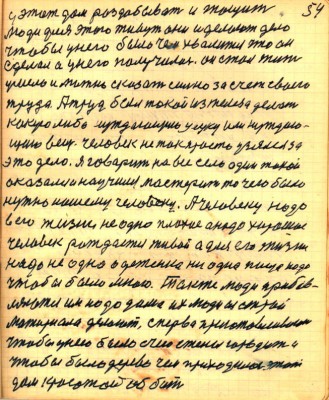 54
у этот дом раздобывает и тащит
люди для этого живут они и делают дело
чтобы у него было чем хвалится то он
сделал а у него получилась он стал жить
умело и можно сказать сильно за счет своего
труда. А труд был такой из железа делать
какую либо нуждающую
вещь. человек не так просто узялся за
это дело. Я говорит на все село один такой
оказался научился мастерить то чего было
нужно нашему человеку. А человеку надо
в его жизни не одно плохое а надо хорошее
человек рождается живой а для его жизни
надо не одно ни одна пища надо
чтобы было много. Также люди
им надо дома их люди с этой
материала делают, сперва
чтобы у него было с чего стены и
чтобы было дерево чем приходился этот
дом красотой оббит